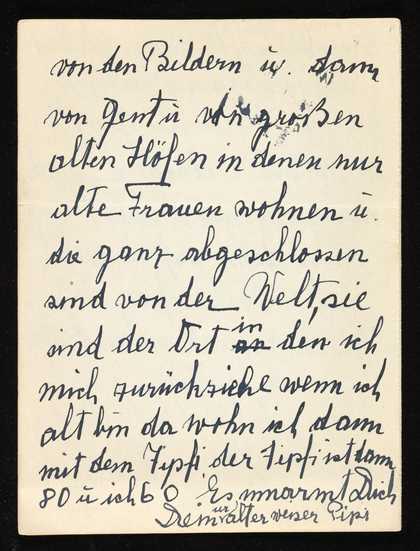 von den Bildern u. dann
von Gent u von großen
alten Höfen in denen nur
alte Frauen wohnen u.
die ganz abgeschlossen
sind von der Welt, sie
sind der Ort in den ich
mich zurückziehe wenn ich
alt bin da wohn ich dann
mit dem Tipfi der Tipfi ist dann
80 u ich 60 Es umarmt Dich
Dein uralter weiser Pips